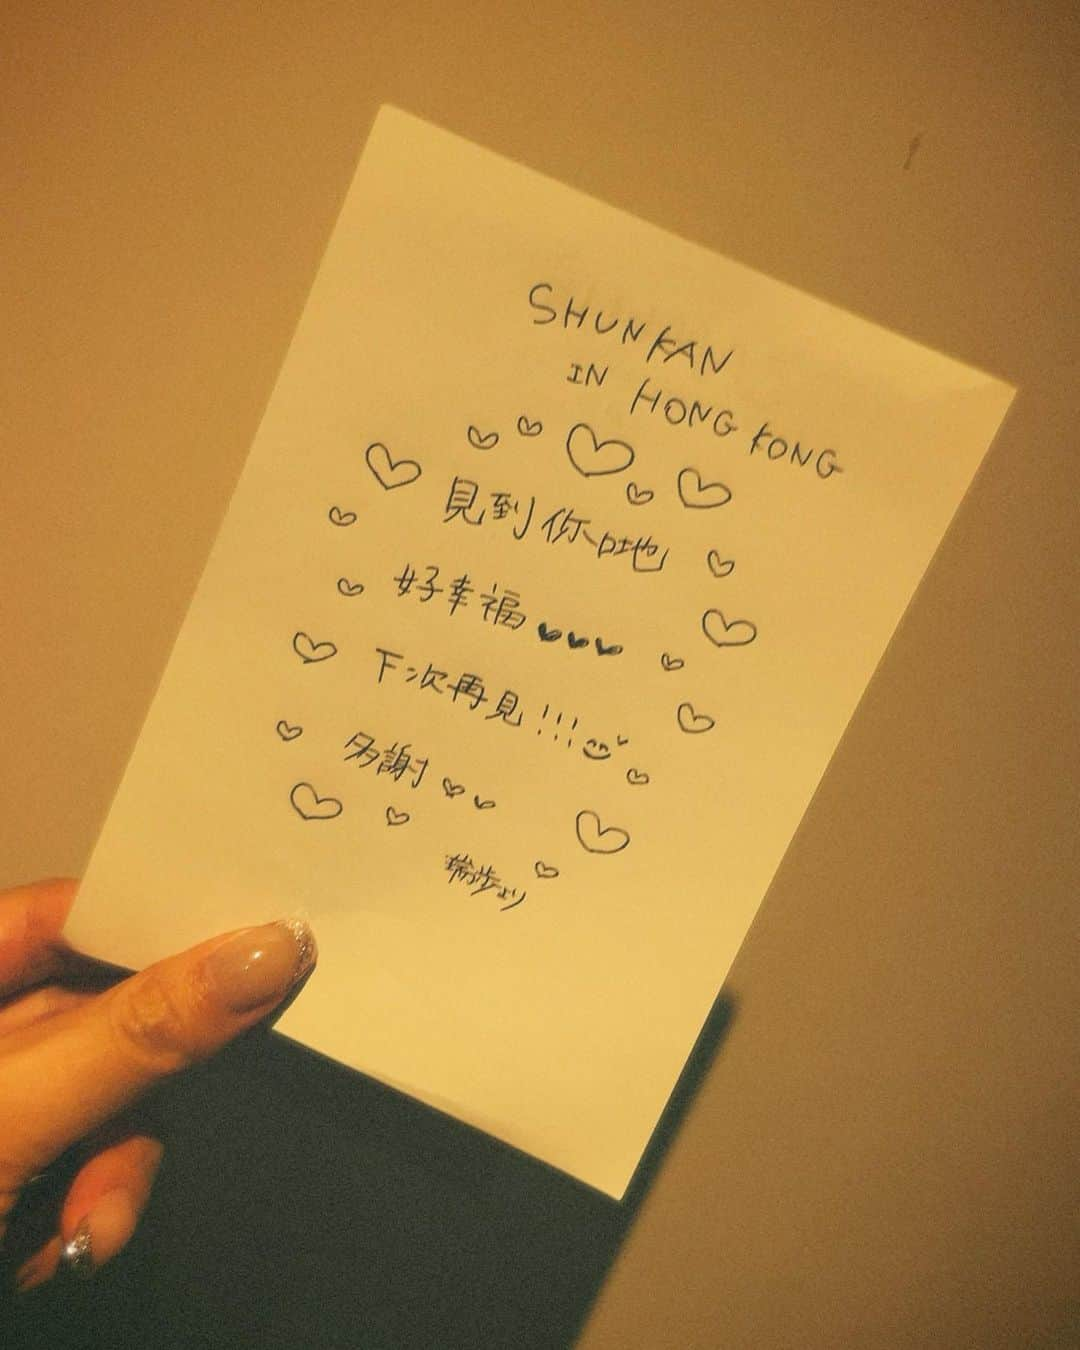 SHUNKAN
IN HONG KONG
見到你哋
好幸福
下次再見!!!
多謝
瑞歩より